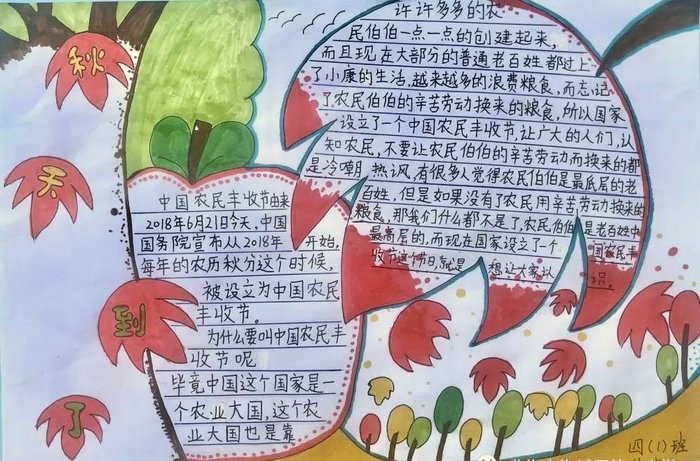 秋
天
到
了
中国农民丰收节由来
2018年6月21日今天,中国
国务院宣布从2018年 开始,
每年的农历秋分这个时候,
被设立为中国农民
丰收节。
为什么要叫中国农民丰
收节呢
毕竟中国这个国家是一
个农业大国,这个农
业大国也是靠
许许多多的农
民伯伯一点一点的创建起来,
而且现在大部分的普通老百姓都过上
了小康的生活,越来越多的浪费粮食,而忘记
了农民伯伯的辛苦劳动换来的粮食,所以国家
设立了一个中国农民丰收节,让广大的人们,认
知农民,不要让农民伯伯的辛苦劳动而换来的都
是冷嘲 热讽,有很多人觉得农民伯伯是最底层的老
百姓,但是如果没有了农民用辛苦劳动换来的
粮食,那我们什么都不是了,农民伯伯是老百姓中
最高层的,而现在国家设立了一个 国农民丰
收节这个节日,就是 想让大家认
识。
四(1)班